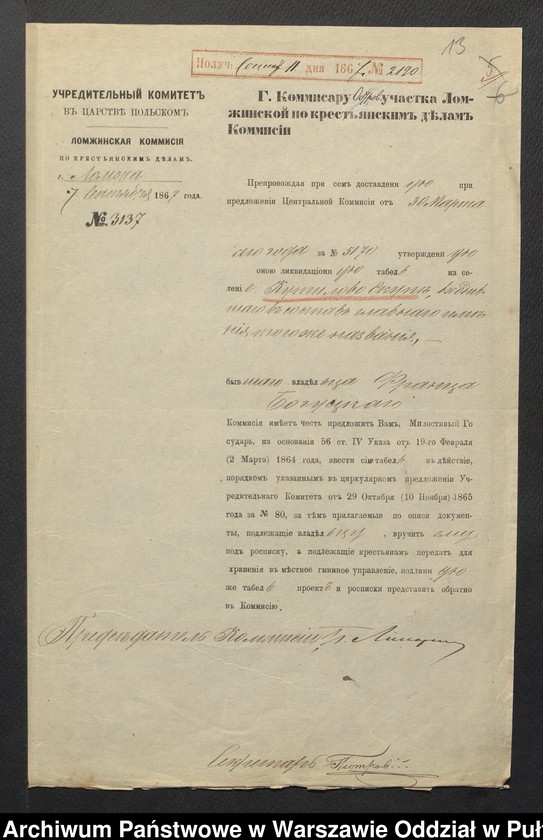 13
Получ. Сент 11 дня 1867 № 2190
6
УЧРЕДИТЕЛЬНЫЙ КОМИТЕТЪ
ВЪ ЦАРСТВѢ ПОЛЬСКОМЪ
ЛОМЖИНСКАЯ КОММИСІЯ
ПО КРЕСТЬЯНСКИМЪ ДѢЛАМЪ.
г. Ломжа
7 Сентября 1867 года.
№ 3137
Г. Коммисару Остров. участка Лом-
жинской по крестьянскимъ дѣламъ
Коммисіи
Препровождая при семъ доставленную при
предложеніи Центральной Коммисіи отъ 30 Марта
сего года за № 5170 утвержденную
оною ликвидаціонную табель на се-
леніе Кутилово Скупе, входив-
шаго въ составъ главнаго имѣ-
нія, того же названія, —
бывшаго владѣльца Франца
Богуцкаго
Коммисія имѣетъ честь предложить Вамъ, Милостивый Го
сударь, на основаніи 56 ст. IV Указа отъ 19-го Февраля
(2 Марта) 1864 года, ввести сію табель въ дѣйствіе,
порядкомъ указаннымъ въ циркулярномъ предложеніи Уч-
редительнаго Комитета отъ 29 Октября (10 Ноября) 1865
года за № 80, за тѣмъ прилагаемые по описи докумен-
ты, подлежащіе владѣльцу, вручить ему
подъ росписку, а подлежащіе крестьянамъ передать для
храненія въ мѣстное гминное управленіе, подлинную
же табель проектъ и росписки представить обратно
въ Коммисію,
Предсѣдатель Коммисіи
Секретарь
Archiwum Państwowe w Warszawie Oddział w Puł